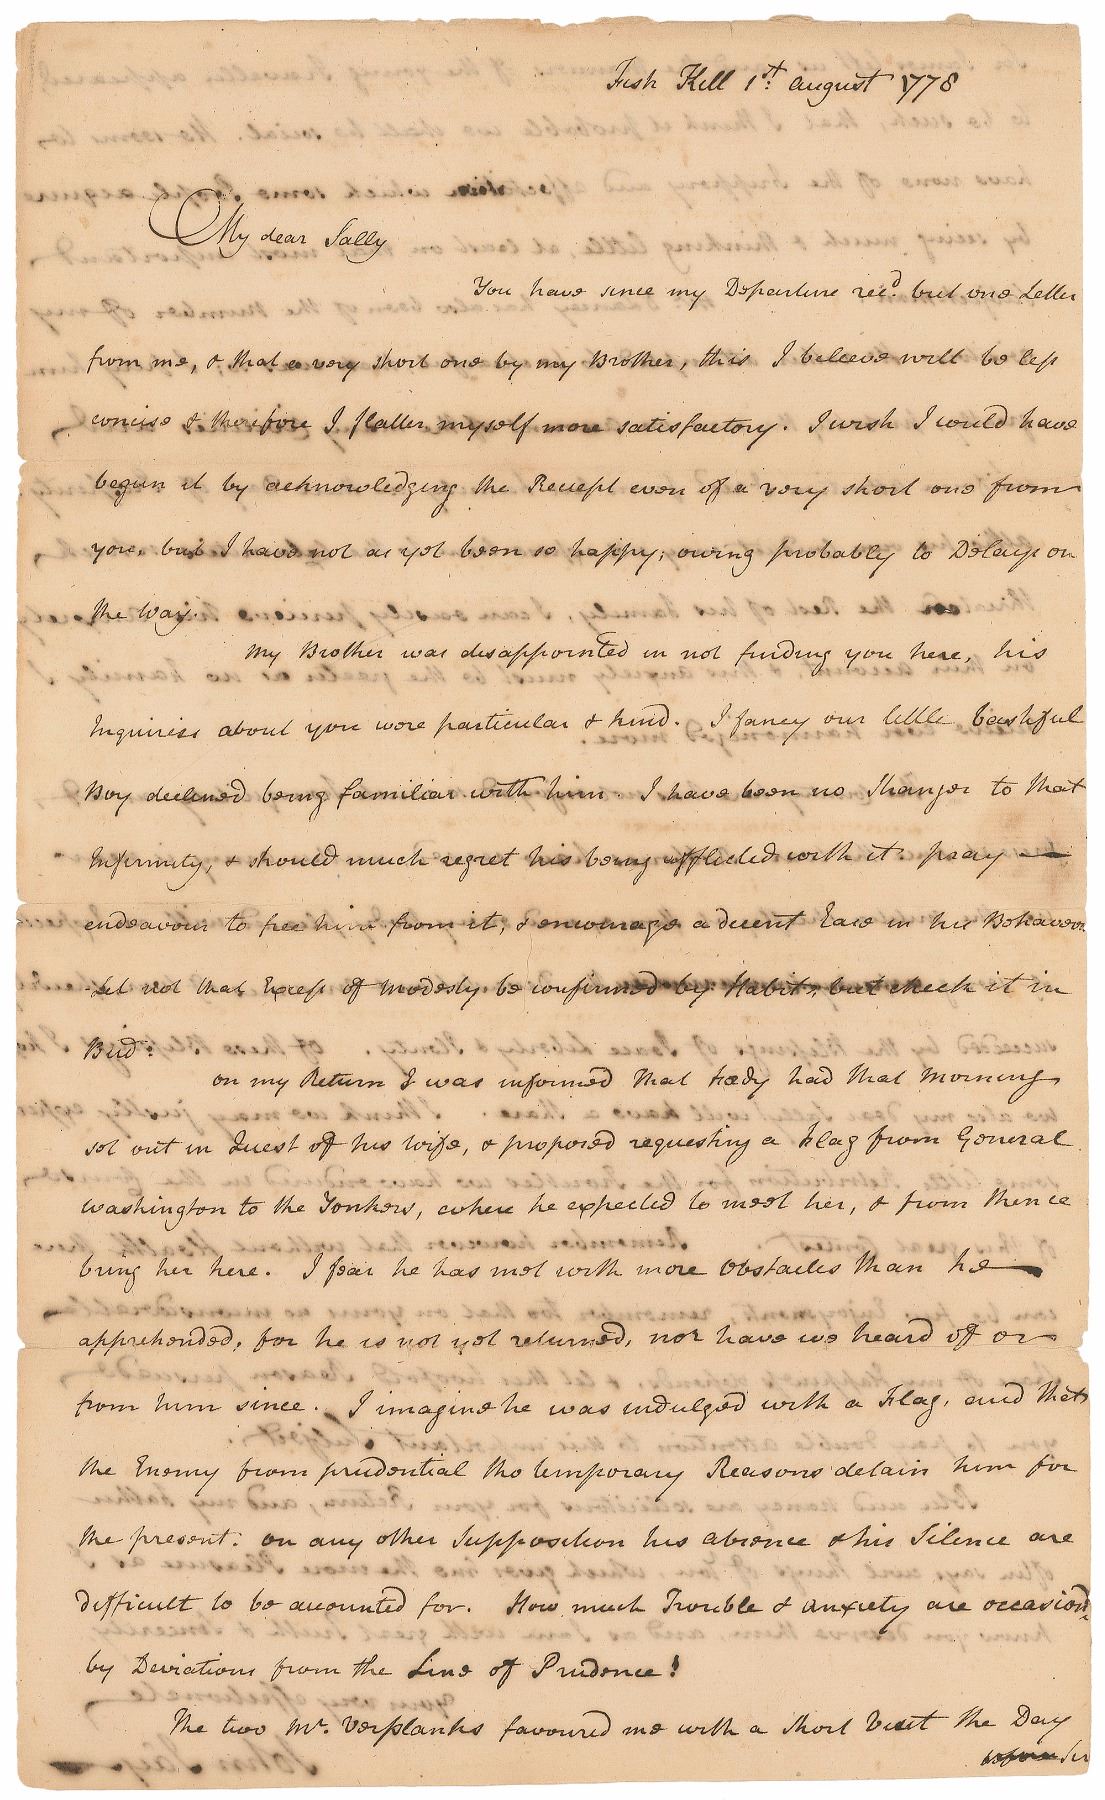 Fish Kill 1st. august 1778
My dear Sally
You have since my Departure recd. but one Letter
from me, & that a very short one by my Brother, this I believe will be less
concise & therefore I flatter myself more satisfactory. I wish I could have
begun it by acknowledging the Receipt even of a very short one from
you, but I have not as yet been so happy; owing probably to Delays on
the way.
My Brother was disappointed in not finding you here, his
Inquiries about you were particular & kind. I fancy our little bashful
Boy declined being familiar with him. I have been no Stranger to that
Infirmity, & should much regret his being afflicted with it. pray —
endeavour to free him from it, & encourage a decent Ease in his Behavour
Let not that Excess of modesty be confirmed by Habit, but check it in
Bud.
on my Return I was informed that had that morning
set out in Quest of his wife, & proposed requesting a Flag from General
Washington to the Yonkers, where he expected to meet her, & from thence
bring her here. I fear he has met with more Obstacles than he —
apprehended, for he is not yet returned, nor have we heard of or
from him since. I imagine he was indulged with a Flag, and that
the Enemy from prudential tho temporary Reasons detain him for
the present. on any other Supposition his absence & his Silence are
difficult to be accounted for. How much Trouble & anxiety are occasiond
by Deviations from the Line of Prudence!
The two Mr. Verplanks favoured me with a short Visit the Day